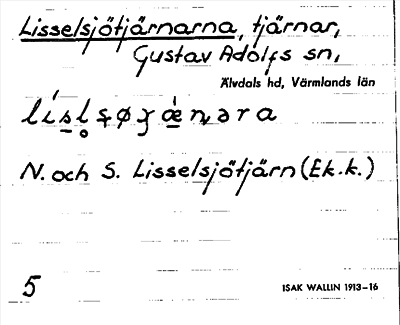 Lisselsjötjärnarna, tjärnar,
Gustav Adolfs sn,
Älvdals hd, Värmlands län
N. och S. Lisselsjötjärn (Ek.k.)
5
ISAK WALLIN 1913–16